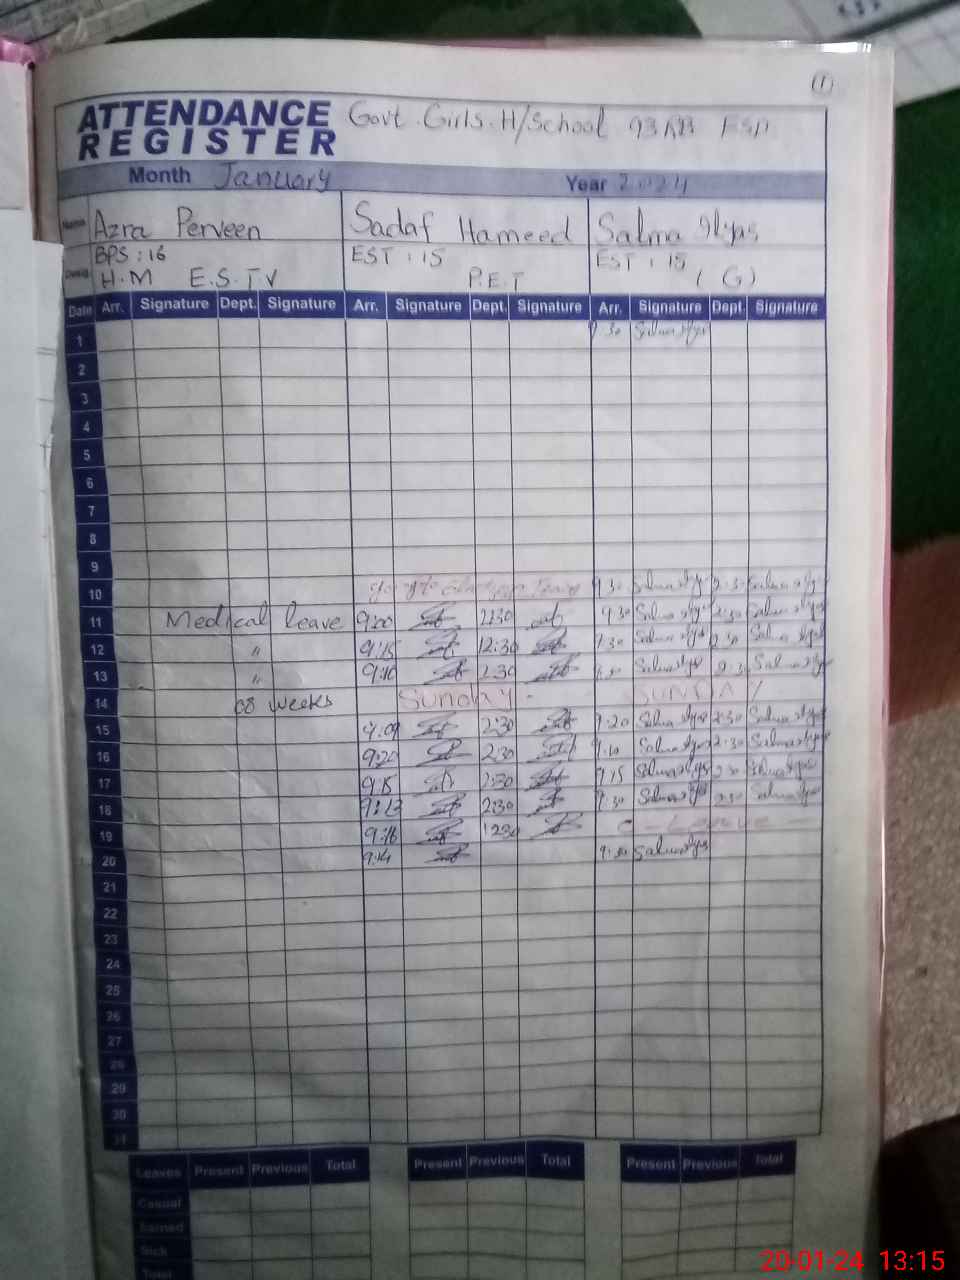 (1)
ATTENDANCE REGISTER Govt. Girls. H/School 93
Month January Year 2024
Name Azra Perveen Sadaf Hameed Salma Ilyas
Desig. BPS : 16 EST : 15 EST : 15
H.M E.S.T.V P.E.T (G)
Date Arr. Signature Dept. Signature Arr. Signature Dept. Signature Arr. Signature Dept. Signature
1 9:30 Salma Ilyas
2
3
4
5
6
7
8
9
10 9:30 Salma Ilyas 2:30 Salma Ilyas
11 Medical leave 9:20 2:30 9:30 Salma Ilyas 2:30 Salma Ilyas
12 " 9:15 12:30 9:30 Salma Ilyas 2:30 Salma Ilyas
13 " 9:10 2:30 Salma Ilyas 2:30 Salma Ilyas
14 08 weeks Sunday - SUNDAY
15 9:09 2:30 9:20 Salma Ilyas 2:30 Salma Ilyas
16 9:20 2:30 9:10 Salma Ilyas 2:30 Salma Ilyas
17 9:15 2:30 9:15 Salma Ilyas 2:30 Salma Ilyas
18 9:13 2:30 9:30 Salma Ilyas 2:30 Salma Ilyas
19 9:16 1230 C - Leave -
20 9:14 9:30 Salma Ilyas
21
22
23
24
25
26
27
28
29
30
31
Leaves Present Previous Total Present Previous Total Present Previous Total
Casual
Earned
Sick
Total
20-01-24 13:15